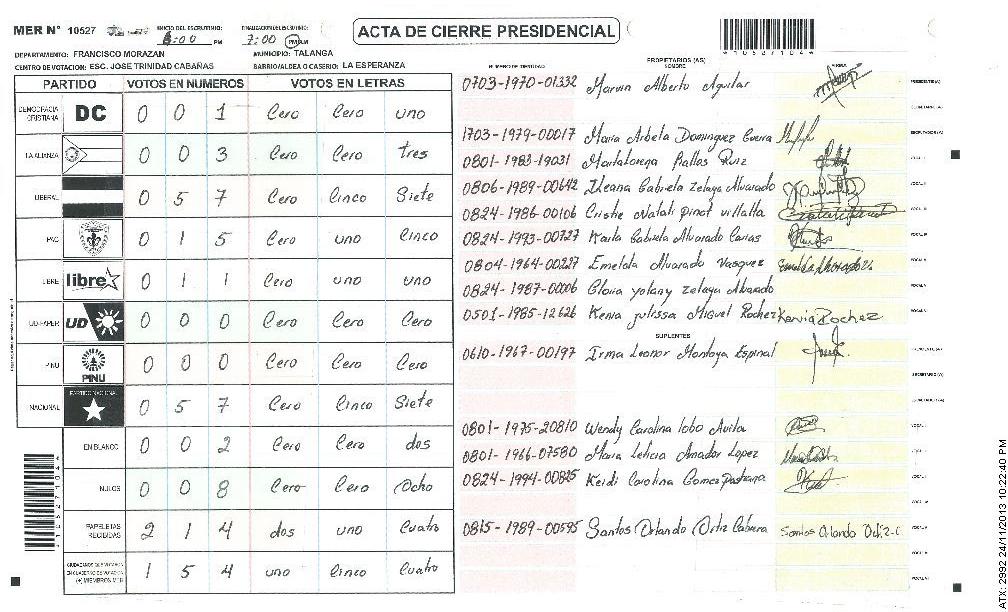 MER Nº 10527
INICIO DEL ESCRUTINIO: FINALIZACION DEL ESCRUTINIO:
:00 PM 7:00 PM
ACTA DE CIERRE PRESIDENCIAL
DEPARTAMENTO: FRANCISCO MORAZAN MUNICIPIO: TALANGA
CENTRO DE VOTACION: ESC. JOSE TRINIDAD CABAÑAS BARRIO/ALDEA O CASERIO: LA ESPERANZA
PARTIDO VOTOS EN NUMEROS VOTOS EN LETRAS
DEMOCRACIA CRISTIANA DC 0 0 1 Cero Cero uno
LA ALIANZA 0 0 3 Cero Cero tres
LIBERAL 0 5 7 Cero Cinco Siete
PAC 0 1 5 Cero uno Cinco
LIBRE libre 0 1 1 Cero uno uno
UD-FAPER UD 0 0 0 Cero Cero Cero
PINU PINU 0 0 0 Cero Cero Cero
NACIONAL PARTIDO NACIONAL 0 5 7 Cero Cinco Siete
EN BLANCO 0 0 2 Cero Cero dos
NULOS 0 0 8 Cero Cero Ocho
PAPELETAS RECIBIDAS 2 1 4 dos uno Cuatro
CIUDADANOS QUE VOTARON EN CUADERNO DE VOTACION (+) MIEMBROS MER 1 5 4 uno Cinco Cuatro
PROPIETARIOS (AS)
NUMERO DE IDENTIDAD NOMBRE FIRMA
0703-1970-01332 Marvin Alberto Aguilar PRESIDENTE(A)
SECRETARIO(A)
1703-1979-00017 Maria Dominguez ESCRUTADOR(A)
0801-1983-19031 Ruiz VOCAL I
0806-1989-00642 Ileana Gabriela Zelaya Alvarado VOCAL II
0824-1986-00106 Cristie Natali pinot villalta VOCAL III
0824-1993-00727 Karla Gabriela Alvarado Carias
0804-1964-00227 Emelda Alvarado Vasquez
0824-1987-00006 Gloria yolany Zelaya Alvarado
0501-1985-12626 Kenia julissa Miguel Rochez Kenia Rochez
SUPLENTES
0610-1967-00197 Irma Leonor Montoya Espinal PRESIDENTE(A)
SECRETARIO(A)
ESCRUTADOR(A)
0801-1975-20810 Wendy Carolina lobo Avila
0801-1966-07580 Maria Leticia Amador Lopez
0824-1994-00825 Keidi Carolina Gomez Pastrana
0815-1989-00595 Santos Orlando Ortiz Cabrera Santos Orlando
ATX: 2992 24/11/2013 10:22:40 PM